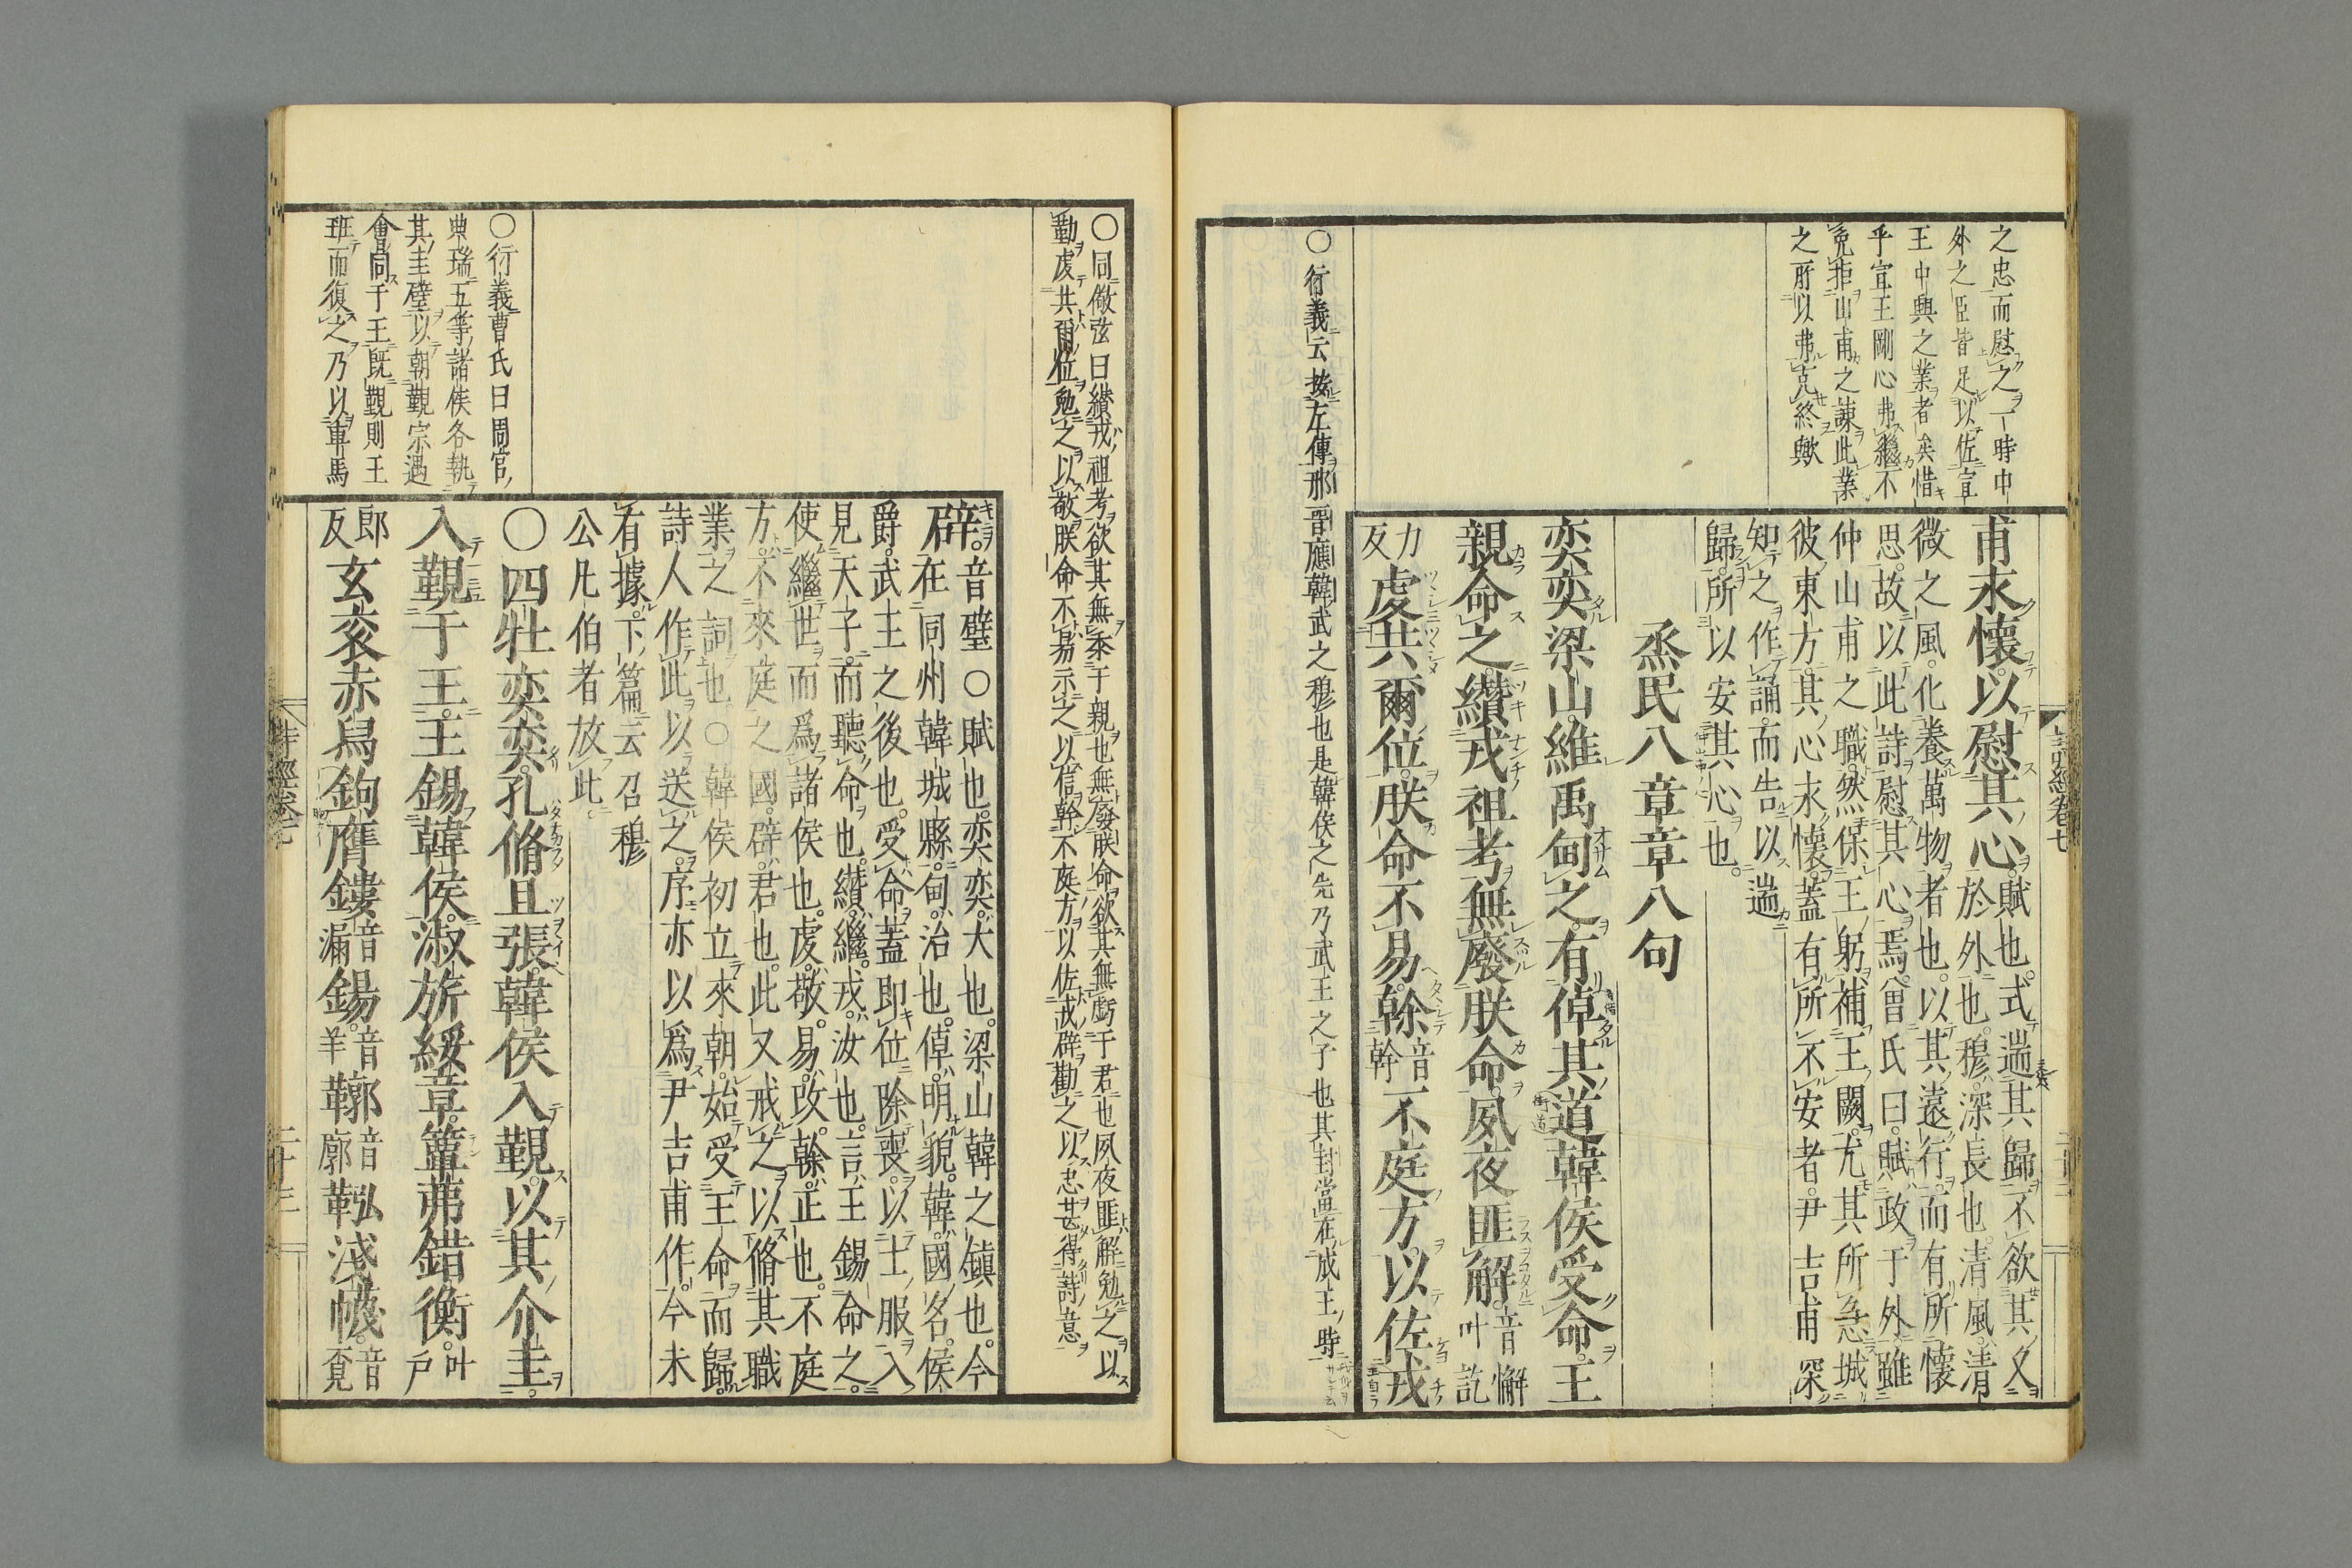 之忠而慰之一時中
外之臣皆足以佐宣
王中興之業者矣惜
乎宣王剛心弗繼不
免拒山甫之諫此業
之所以弗克終歟
甫永懷以慰其心賦也式遄其歸不欲其久
於外也穆深長也清風清
微之風化養萬物者也以其遠行而有所懷
思故以此詩慰其心焉曾氏曰賦政于外雖
仲山甫之職然保王躬補王闕尤其所急城
彼東方其心永懷蓋有所不安者尹吉甫深
知之作誦而告以遄
歸所以安其心也
烝民八章章八句
奕奕梁山維禹甸之有倬其道韓侯受命王
親命之纘戎祖考無廢朕命夙夜匪解音懈叶訖
力反虔共爾位朕命不易榦音幹不庭方以佐戎
○行義云按左傳邢晉應韓武之穆也是韓侯之先乃武王之子也其封當在成王時
○同儆弦曰纘戎祖考欲其無忝于親也無廢朕命欲其無虧于君也夙夜匪解勉之以
勤虔共爾位勉之以敬朕命不易示之以信榦不庭方以佐戎辟勸之以忠甚得詩意
辟音璧○賦也奕奕大也梁山韓之鎮也今
在同州韓城縣甸治也倬明貌韓國名侯
爵武王之後也受命蓋即位除喪以士服入
見天子而聽命也纘繼戎汝也言王錫命之
使繼世而爲諸侯也虔敬易改榦正也不庭
方不來庭之國辟君也此又戒之以脩其職
業之詞也○韓侯初立來朝始受王命而歸
詩人作此以送之序亦以爲尹吉甫作今未
有據下篇云召穆
公凡伯者放此
○四牡奕奕孔脩且張韓侯入覲以其介圭
入覲于王王錫韓侯淑旂綏章簟茀錯衡叶戶
郎反玄袞赤舄鉤膺鏤音漏鍚音羊鞹音廓鞃淺幭音覓
○行義曹氏曰周官
典瑞五等諸侯各執
其圭璧以朝覲宗遇
會同于王既覲則王
班而復之乃以車馬
詩經卷七
二十三